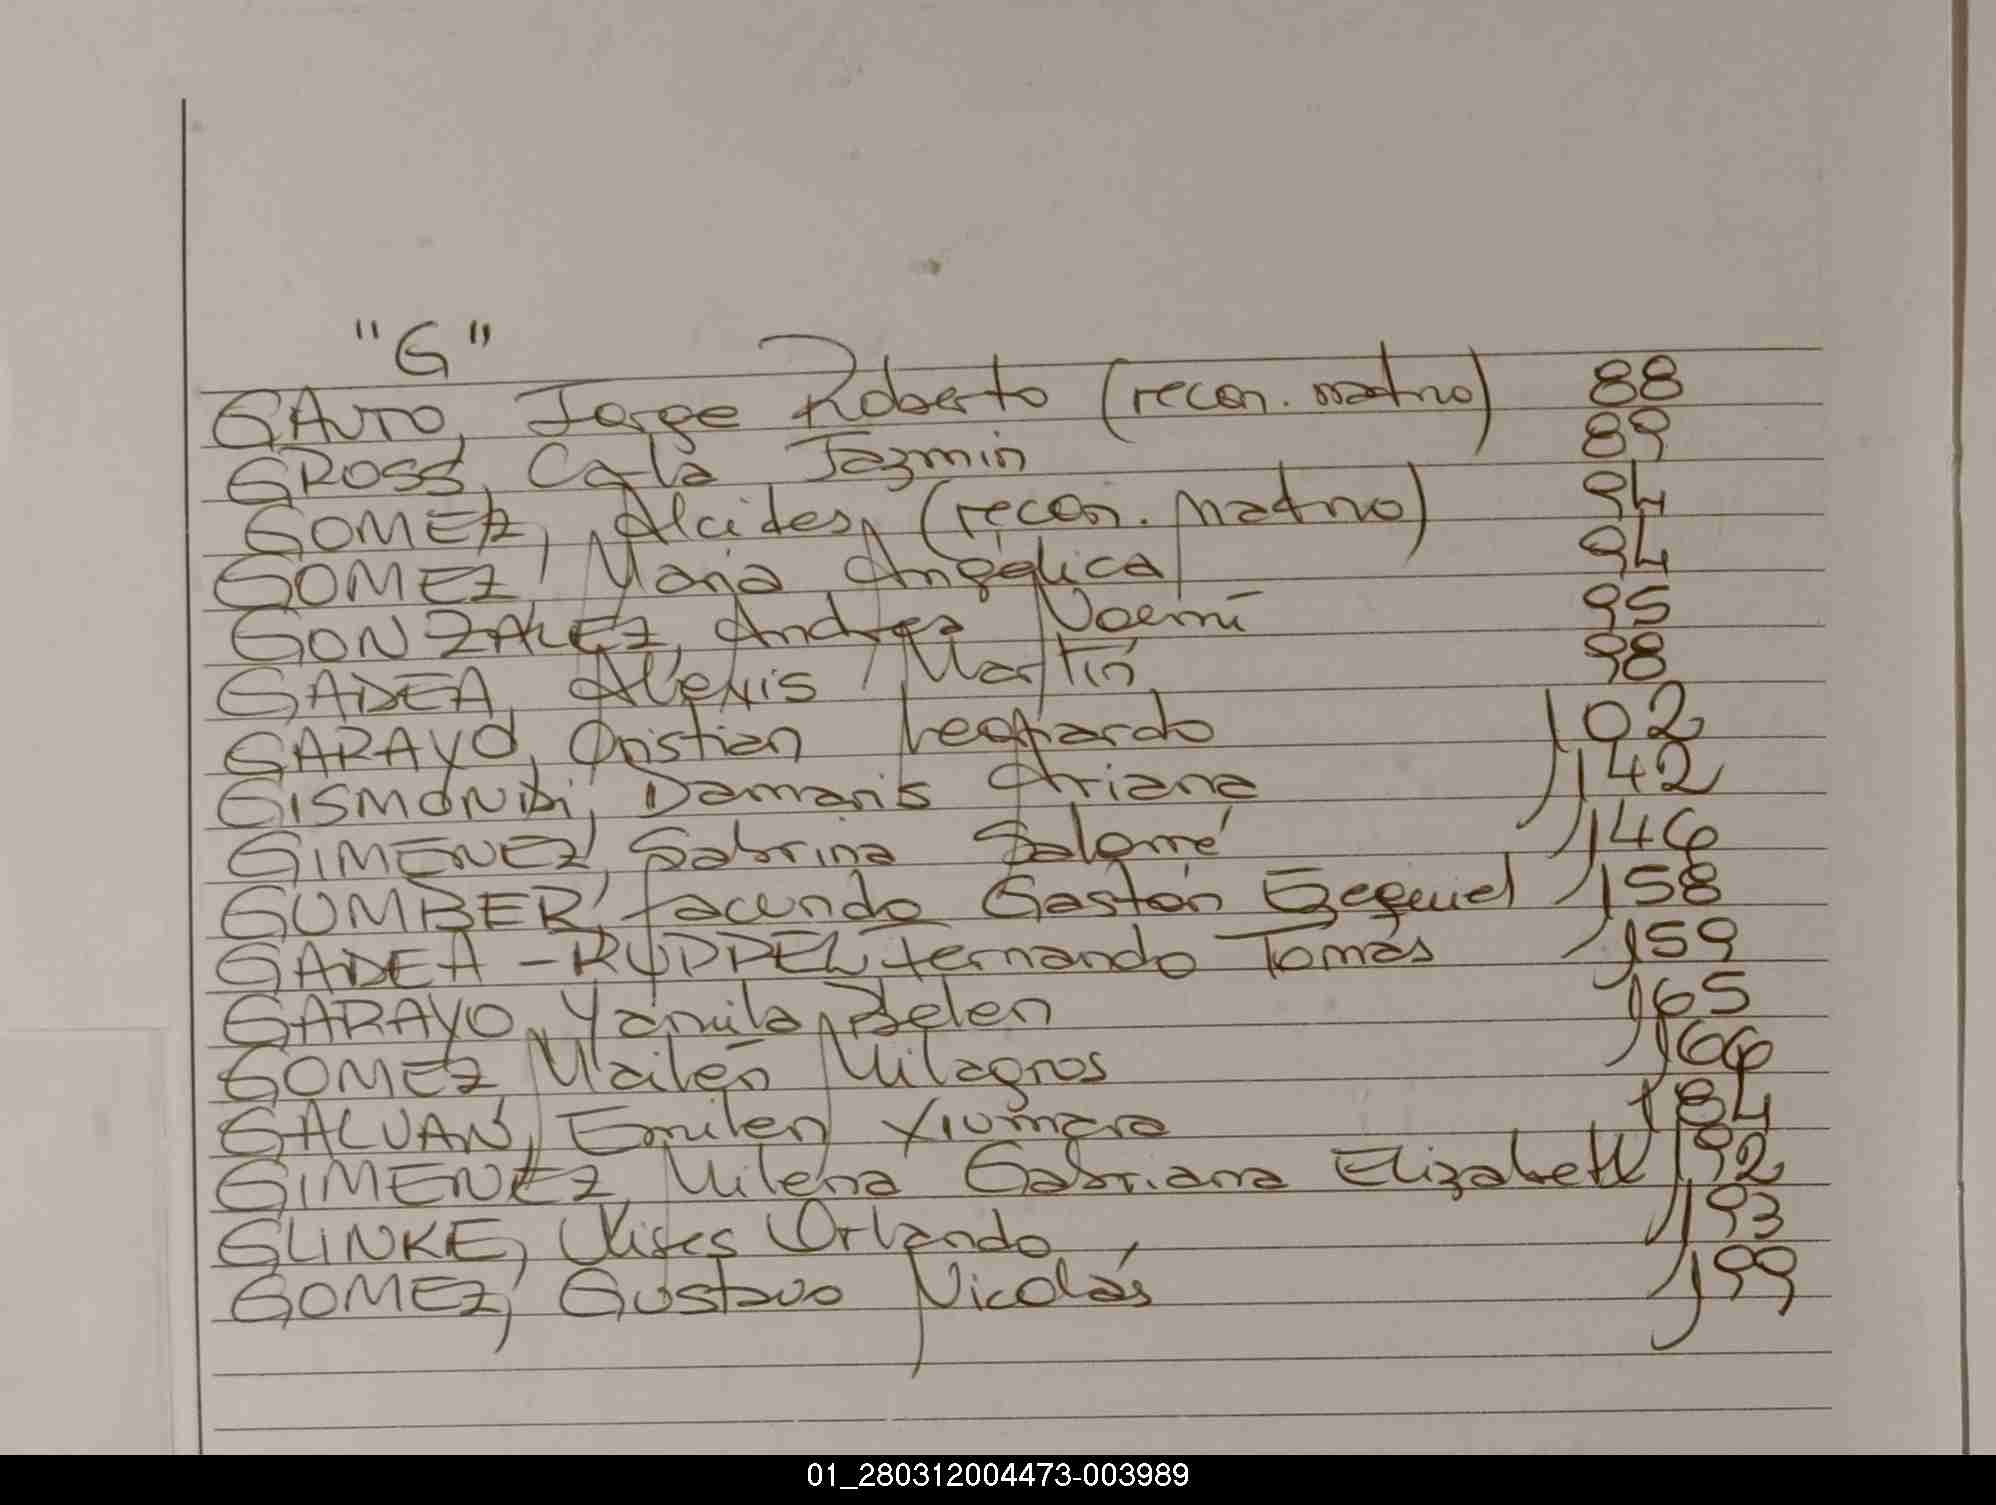 "G"
GAUTO, Jorge Roberto (recon. matrno) 88
GROSS, Carla Jazmin 89
GOMEZ, Alcides, (recon. matrno) 94
GOMEZ, María Angélica 94
GONZALEZ, Andrea Noemí 95
GADEA, Alexis Martín 98
GARAYO, Cristian Leonardo 102
GISMONDI, Damaris Ariana 142
GIMENEZ, Sabrina Salomé 146
GUMBER, Facundo Gastón Ezequiel 158
GADEA - RUPPEL, Fernando Tomás 159
GARAYO, Yamila Belen 165
GOMEZ Mailén Milagros 166
GALVAN, Emilen Xiumara 184
GIMENEZ, Milena Gabriana Elizabeth 192
GLINKE, Ulises Orlando 193
GOMEZ, Gustavo Nicolás 199
01_280312004473-003989